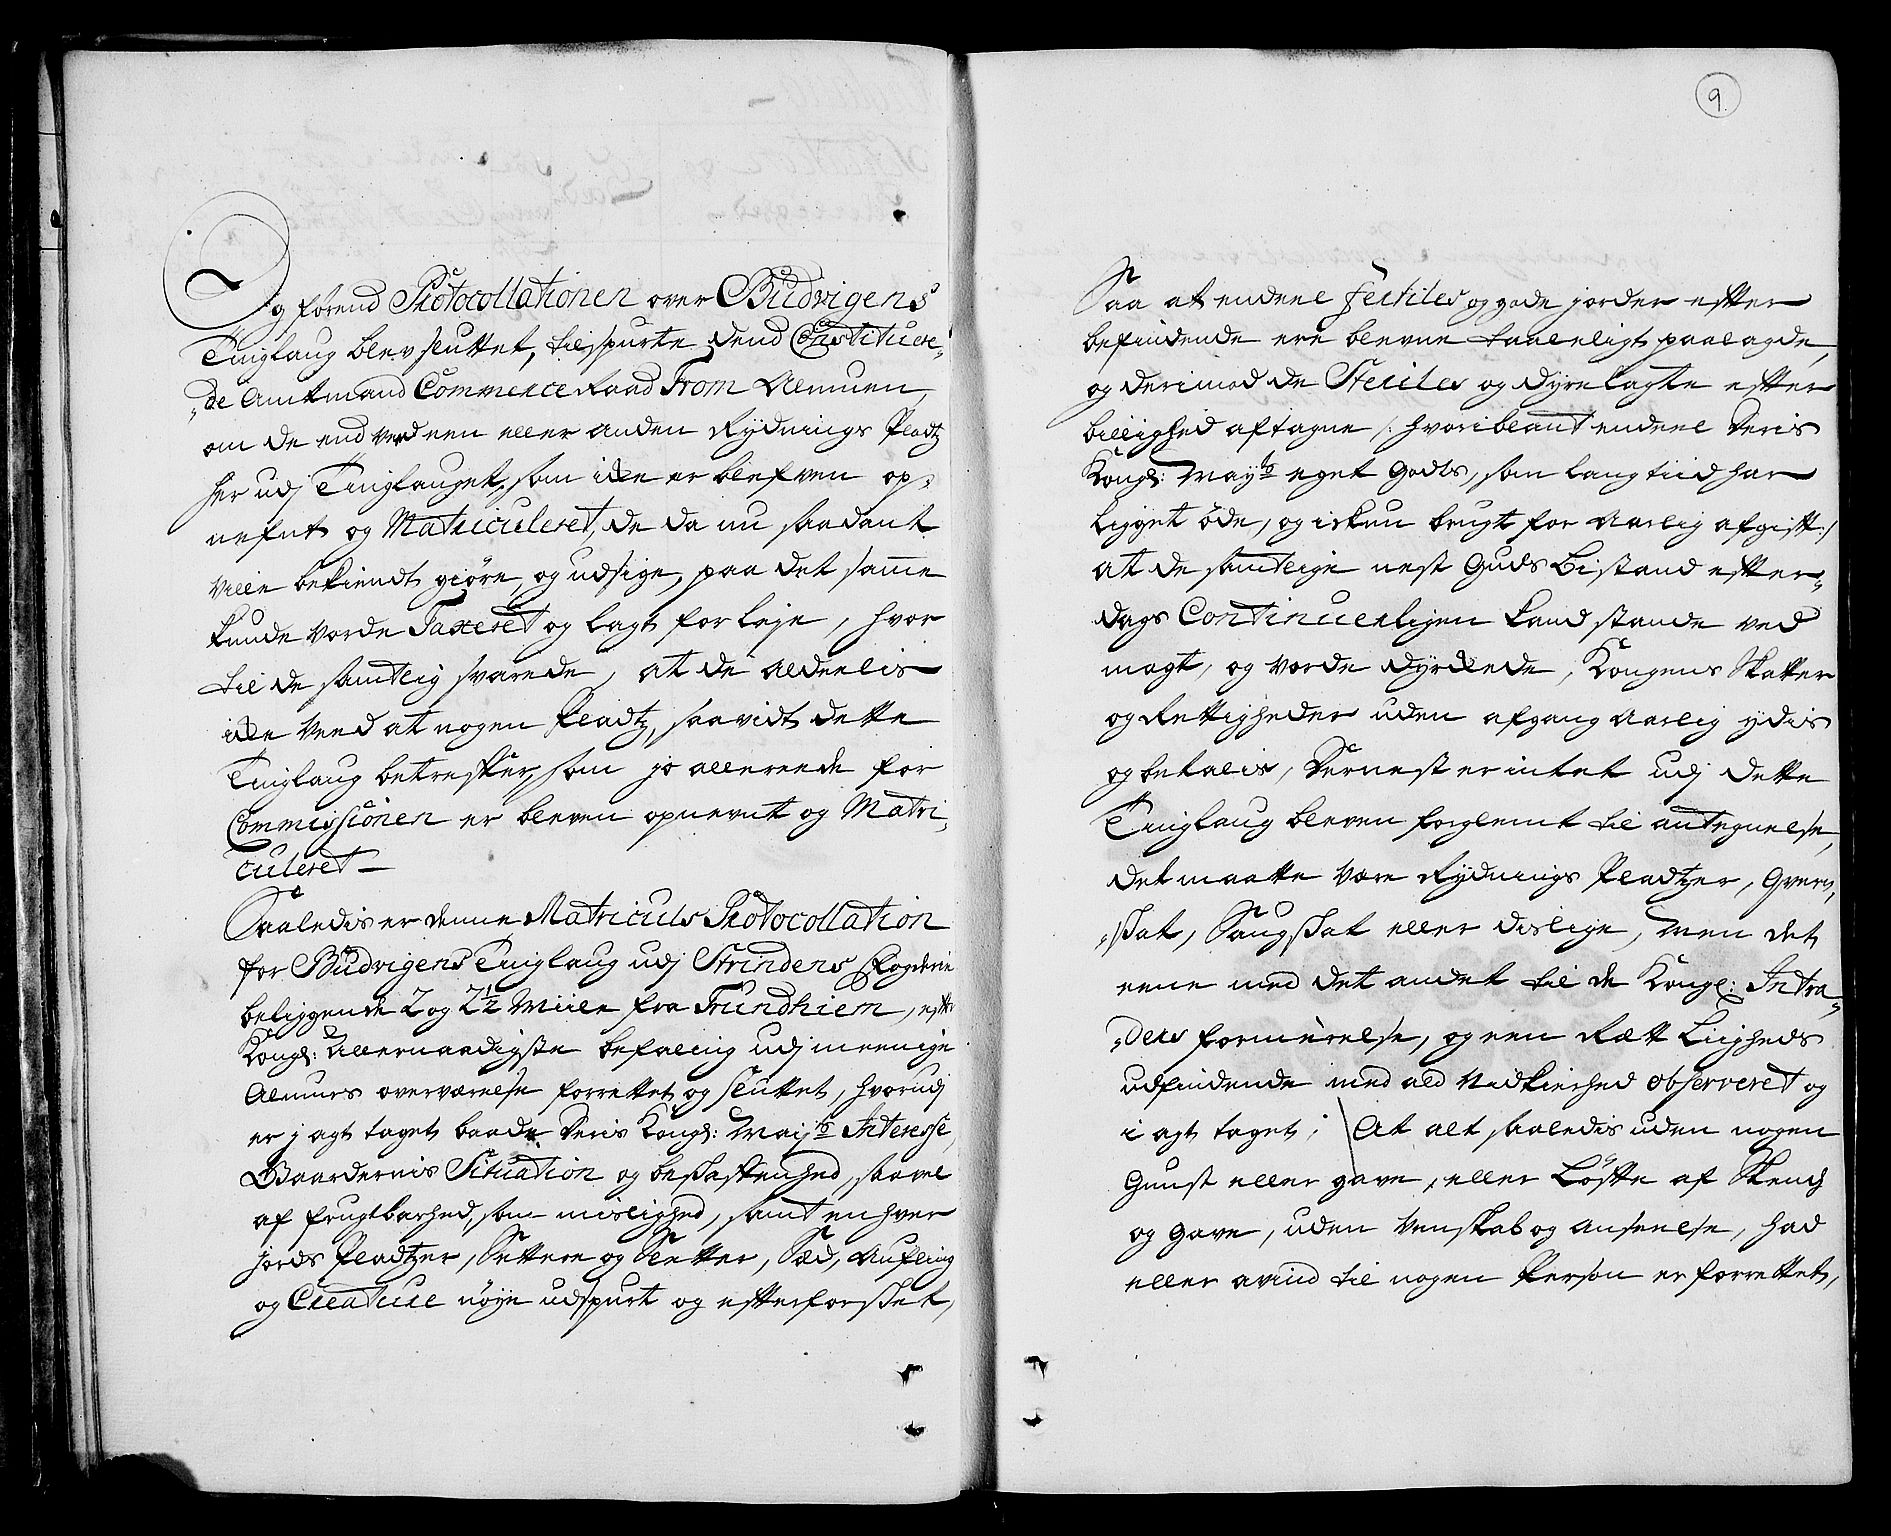 Og førend Protocollationen over Budvigens
Tinglaug blev sluttet, tilspurte dend Constituere„
„de Amtmand Commerce Raad From Almuen,
om de end veed een eller anden Rydnings Pladtz
her udj Tinglauget, som icke er blefven op„
nefnt og Matriculeret, de da nu saadant
ville bekiendt giøre, og udsige, paa det samme
kunde vorde Taxeret og lagt for leje, hvor
til de samtlig svarede, at de aldeelis
icke veed at nogen Pladtz, saavidt dette
Tinglaug betreffer, som jo allereede for
Commissionen er bleven opnevnt og Matri„
culeret —
Saaledis er denne Matriculs Protocollation
for Budvigens Tinglaug udj Strindens Fogderie
beliggende 2 og 2½ Miile fra Trundhiem, efter
Kongl: Allernaadigste befaling udj meenige
Almues overværelse forrettet og sluttet, hvorudj
er j agt taget baade Deris Kongl: Mayts Interesse,
Gaardernis Situation og beskaffenhed, saavel
af frugtbarhed, som mislighed, samt en hver
jords Pladtzer, Settere og Sletter, Sæd, Aufling
og Creature nøye udspurt og efterforsket,
9.
Saa at endeel fertiles og gode jorder efter
befindende ere blevne taaleligt paalagde,
og derimod de Steriles og dyrelagte efter
billighed aftagne /: hvoriblant endeel Deris
Kongl: Mayts eget Gods, som lang tiid har
ligget øde, og ickun brugt for Aarlig afgift :/
at de samtlige nest Guds bistand efter„
dags Continuerligen kand stande ved
magt, og vorde dyrckede, Kongens Skatter
og Rettigheder uden afgang Aarlig ydis
og betalis, Dernest er intet udj dette
Tinglaug bleven forglemt til antegnelse,
det maatte være Rydnings Pladtzer, Qvern„
„skat, Saugskat eller deslige, Men det
eene med det andet til de Kongl: Intra„
„ders formeerelse, og een Rætt Liigheds
udfindende med ald Vedkierhed observeret og
i agt taget; At alt saaledis uden nogen
Gunst eller gave, eller Løfte af Skenck
og Gave, uden Venskab og anseelse, had
eller avind til nogen Person er forrettet,